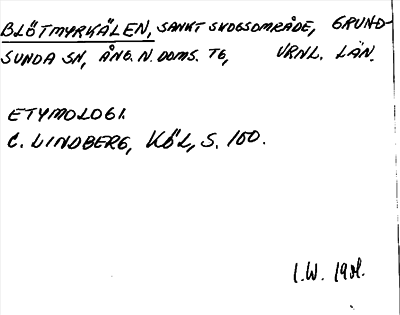 BLÖTMYRKÄLEN, SANKT SKOGSOMRÅDE, GRUND-
SUNDA SN, ÅNG. N. DOMS. TG, VRNL. LÄN.
ETYMOLOGI.
C. LINDBERG, KÖL, S. 100.
I.W.